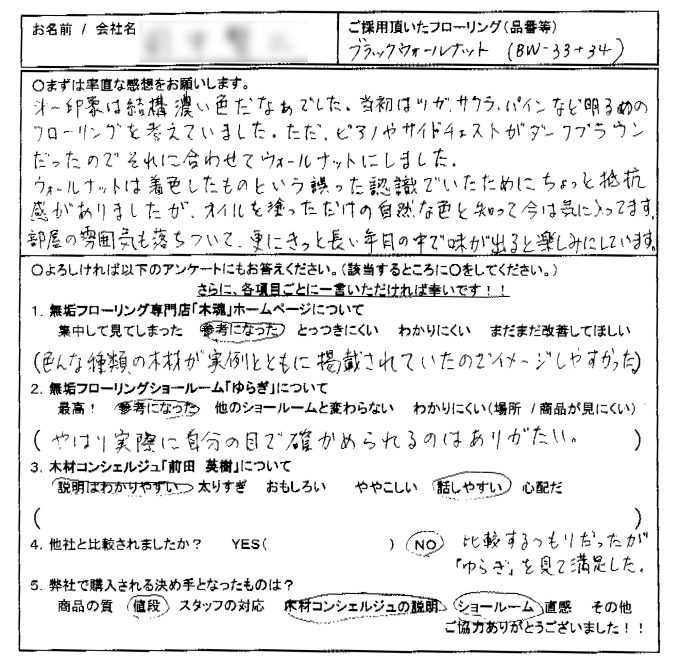 お名前 / 会社名
ご採用頂いたフローリング(品番等)
ブラックウォールナット (BW-33+34)
○まずは率直な感想をお願いします。
第一印象は結構濃い色だなぁでした。当初はツガ、サクラ、パインなど明るめの
フローリングを考えていました。ただ、ピアノやサイドチェストがダークブラウン
だったのでそれに合わせてウォールナットにしました。
ウォールナットは着色したものという誤った認識でいたためにちょっと抵抗
感がありましたが、オイルを塗っただけの自然な色と知って今は気に入ってます。
部屋の雰囲気も落ちついて、更にきっと長い年月の中で味が出ると楽しみにしています。
○よろしければ以下のアンケートにもお答えください。(該当するところに○をしてください。)
さらに、各項目ごとに一言いただければ幸いです!!
1. 無垢フローリング専門店「木魂」ホームページについて
集中して見てしまった 参考になった とっつきにくい わかりにくい まだまだ改善してほしい
(色んな種類の木材が実例とともに掲載されていたのでイメージしやすかった)
2. 無垢フローリングショールーム「ゆらぎ」について
最高! 参考になった 他のショールームと変わらない わかりにくい(場所 /商品が見にくい)
( やはり実際に自分の目で確かめられるのはありがたい。 )
3. 木材コンシェルジュ「前田 英樹」について
説明はわかりやすい 太りすぎ おもしろい ややこしい 話しやすい 心配だ
( )
4. 他社と比較されましたか? YES( ) NO 比較するつもりだったが
「ゆらぎ」を見て満足した。
5. 弊社で購入される決め手となったものは?
商品の質 値段 スタッフの対応 木材コンシェルジュの説明 ショールーム 直感 その他
ご協力ありがとうございました!!